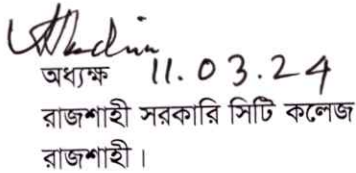 অধ্যক্ষ 11.03.24
রাজশাহী সরকারি সিটি কলেজ
রাজশাহী।